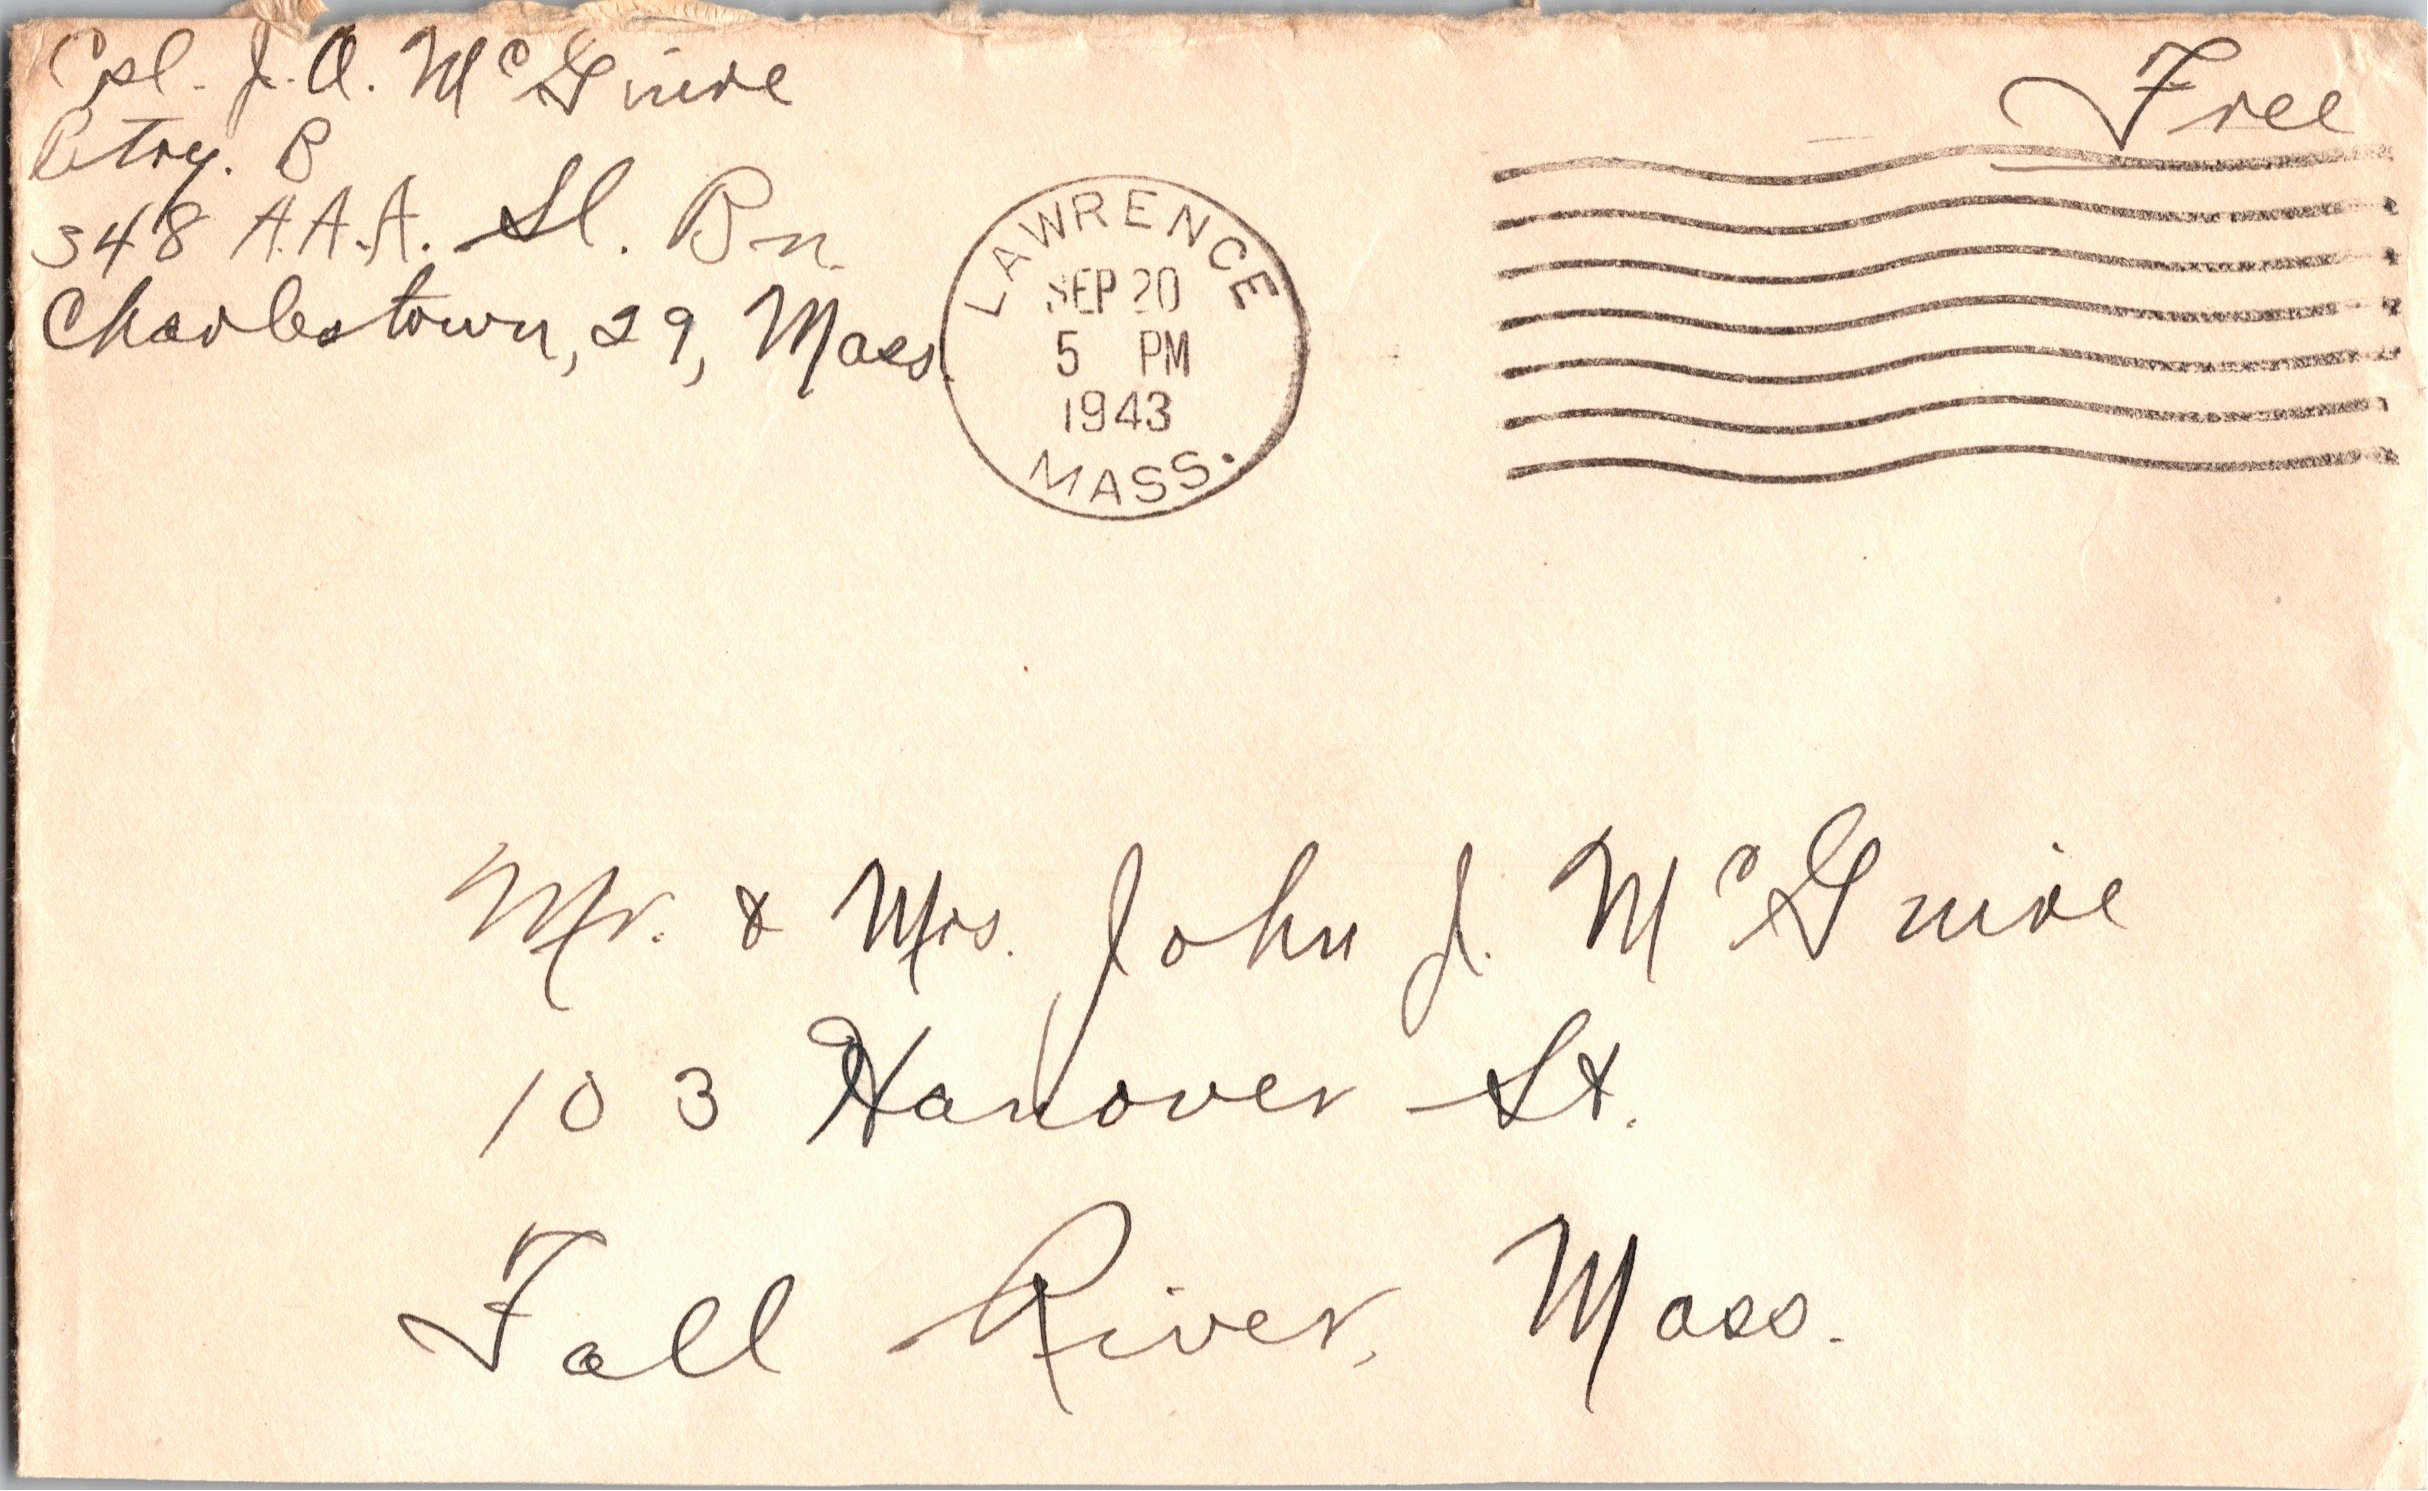 Cpl. J. A. McGuire
Btry. B
348 A.A.A. Sl. Bn.
Charlestown, 29, Mass.
Free
LAWRENCE
SEP 20
5 PM
1943
MASS.
Mr. & Mrs. John J. McGuire
103 Hanover St.
Fall River, Mass.